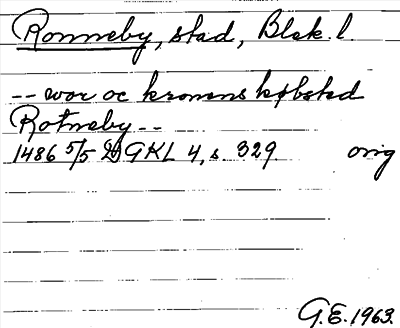 Ronneby, stad, Blek. l.
-- wor oc kronens købsted
Rotneby --
1486 5/5 DGKL 4, s. 329 orig
G.E. 1963.